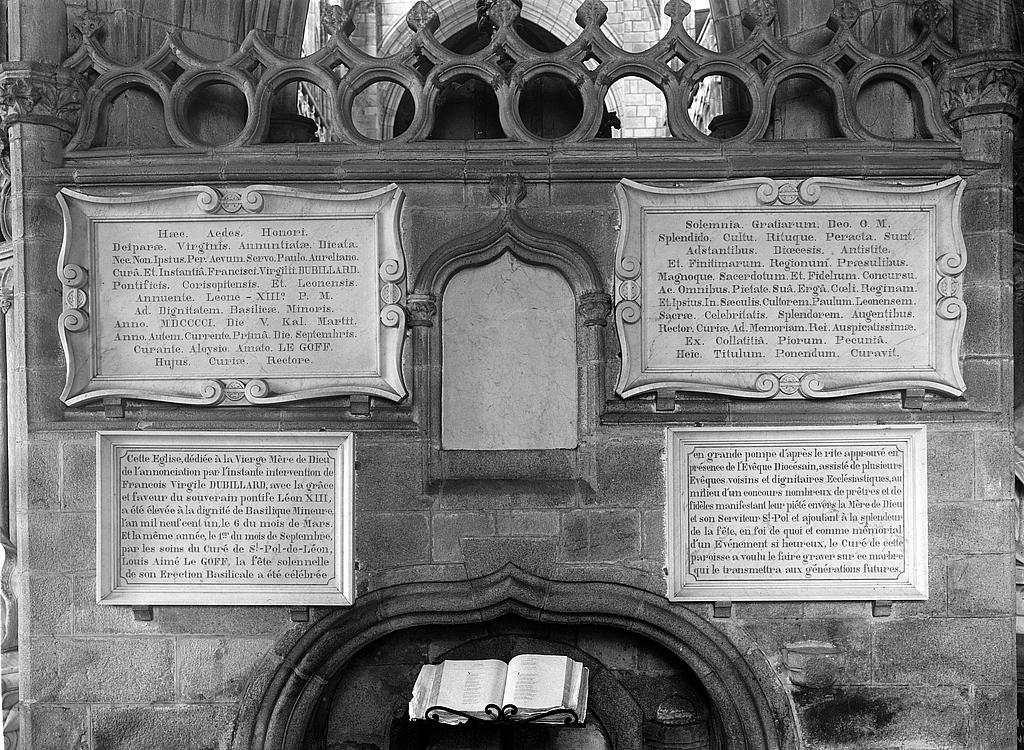 Hæc. Aedes. Honori.
Deiparæ. Virginis. Annuntiatæ. Dicata.
Nec. Non. Ipsius. Per. Aevum. Servo. Paulo. Aureliano.
Curâ. Et. Instantiâ. Francisci. Virgilii. DUBILLARD.
Pontificis. Corisopitensis. Et. Leonensis.
Annuente. Leone - XIIIº P. M.
Ad. Dignitatem. Basilicæ. Minoris.
Anno. MDCCCCI. Die V. Kal. Martii.
Anno. Autem. Currente. Primâ. Die. Septembris.
Curante. Aloysio. Amato. LE GOFF.
Hujus. Curiæ. Rectore.
Solemnia. Gratiarum. Deo. O. M.
Splendido. Cultu. Rituque. Peracta. Sunt.
Adstantibus. Diœcesis. Antistite.
Et. Finitimarum. Regionum. Præsulibus.
Magnoque. Sacerdotum. Et. Fidelum. Concursu.
Ac. Omnibus. Pietate. Suâ. Ergâ. Cœli. Reginam.
Et. Ipsius. In. Sæculis. Cultorem. Paulum. Leonensem.
Sacræ. Celebritatis. Splendorem. Augentibus.
Rector. Curiæ. Ad. Memoriam. Rei. Auspicatissimæ.
Ex. Collatitiâ. Piorum. Pecuniâ.
Heic. Titulum. Ponendum. Curavit.
Cette Eglise, dédiée à la Vierge Mère de Dieu
de l'annonciation par l'instante intervention de
Francois Virgile DUBILLARD, avec la grâce
et faveur du souverain pontife Léon XIII,
a été élevée à la dignité de Basilique Mineure,
l'an mil neuf cent un, le 6 du mois de Mars.
Et la même année, le 1er du mois de Septembre,
par les soins du Curé de St-Pol-de-Léon,
Louis Aimé LE GOFF, la fête solennelle
de son Erection Basilicale a été célébrée
en grande pompe d'après le rite approuvé en
présence de l'Evêque Diocésain, assisté de plusieurs
Evêques voisins et dignitaires Ecclésiastiques, au
milieu d'un concours nombreux de prêtres et de
fidèles manifestant leur piété envers la Mère de Dieu
et son Serviteur St-Pol et ajoutant à la splendeur
de la fête, en foi de quoi et comme mémorial
d'un Evénement si heureux, le Curé de cette
paroisse a voulu le faire graver sur ce marbre
qui le transmettra aux générations futures.